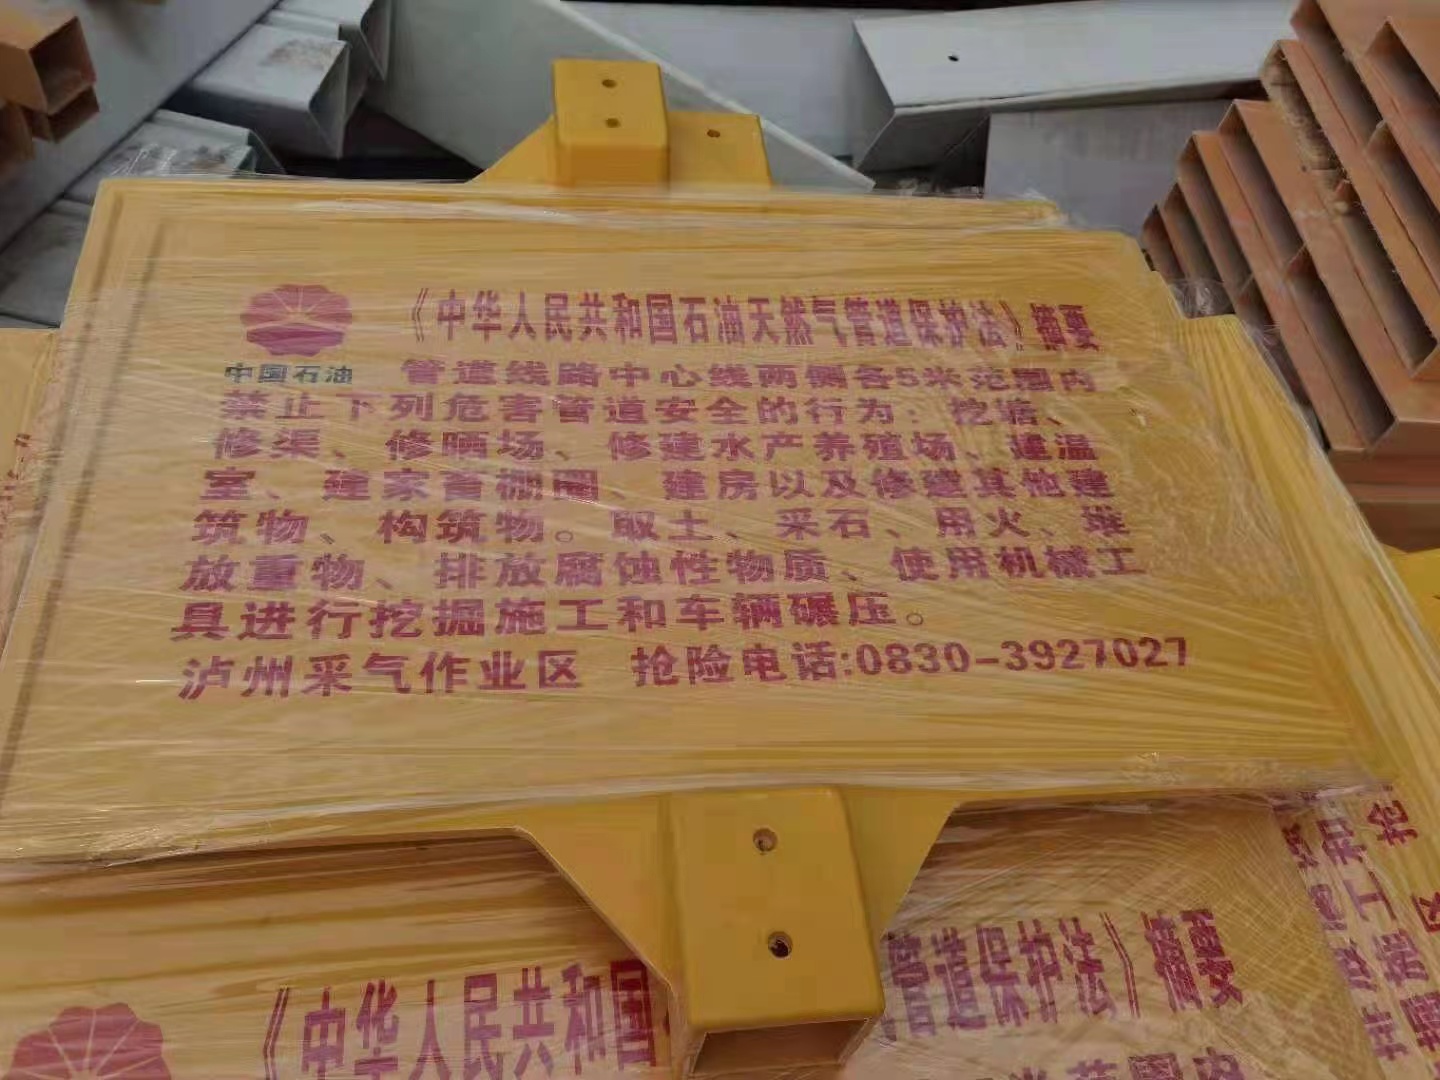 《中华人民共和国石油天然气管道保护法》摘要
中国石油
管道线路中心线两侧各5米范围内
禁止下列危害管道安全的行为：挖塘、
修渠、修晒场、修建水产养殖场、建温
室、建家畜棚圈、建房以及修建其他建
筑物、构筑物。取土、采石、用火、堆
放重物、排放腐蚀性物质、使用机械工
具进行挖掘施工和车辆碾压。
泸州采气作业区 抢险电话:0830-3927027
《中华人民共和国
管道保护法》摘要